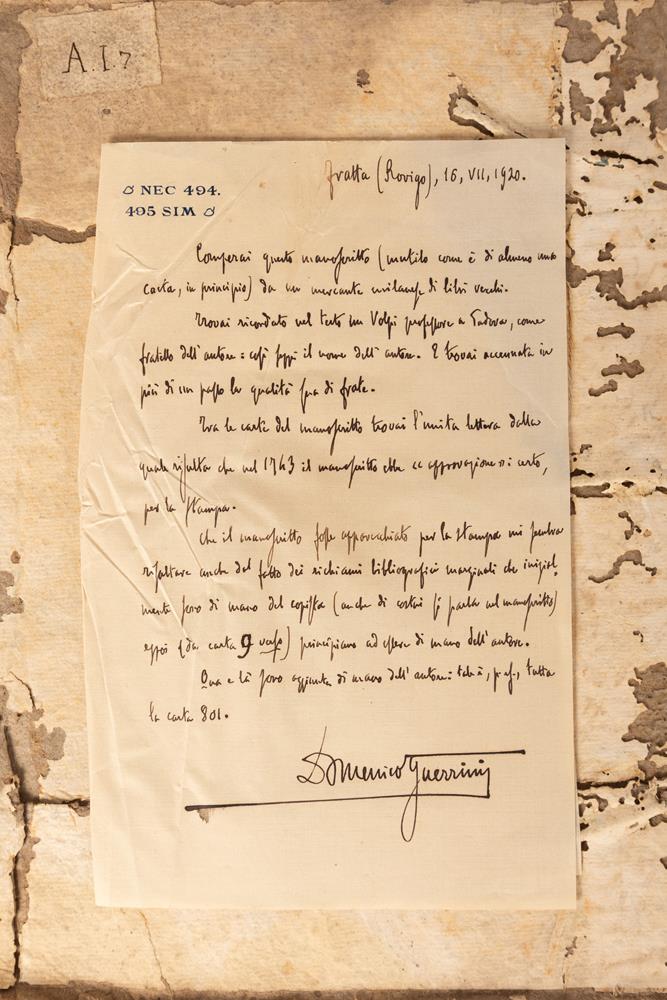 A.I.7
NEC 494.
495 SIM
Fratta (Rovigo), 16, VII, 1920.
Comperai questo manoscritto (mutilo come è di almeno una
carta, in principio) da un mercante milanese di libri vecchi.
Trovai ricordato nel testo un Volpi professore a Padova, come
fratello dell'autore: così seppi il nome dell'autore. E trovai accennata in
più di un passo la qualità sua di frate.
Tra le carte del manoscritto trovai l'unita lettera dalla
quale risulta che nel 1743 il manoscritto ebbe "approvazione" certo,
per la stampa.
Che il manoscritto fosse apparecchiato per la stampa mi sembra
risultare anche dal fatto dei richiami bibliografici marginali che inizial-
mente sono di mano del copista (anche di costui si parla nel manoscritto)
e poi (da carta 9 verso) principiano ad essere di mano dell'autore.
Qua e là sono aggiunte di mano dell'autore: tale è, p. es., tutta
la carta 801.
Domenico Guerrini